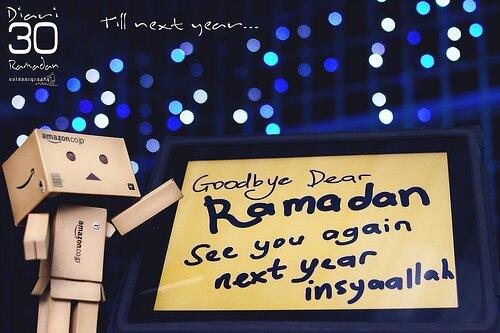 Diari
30
Ramadan
outdoorgraphy
Till next year...
amazon.co.jp
amazon.co.jp
Goodbye Dear
Ramadan
See you again
next year
insyaallah